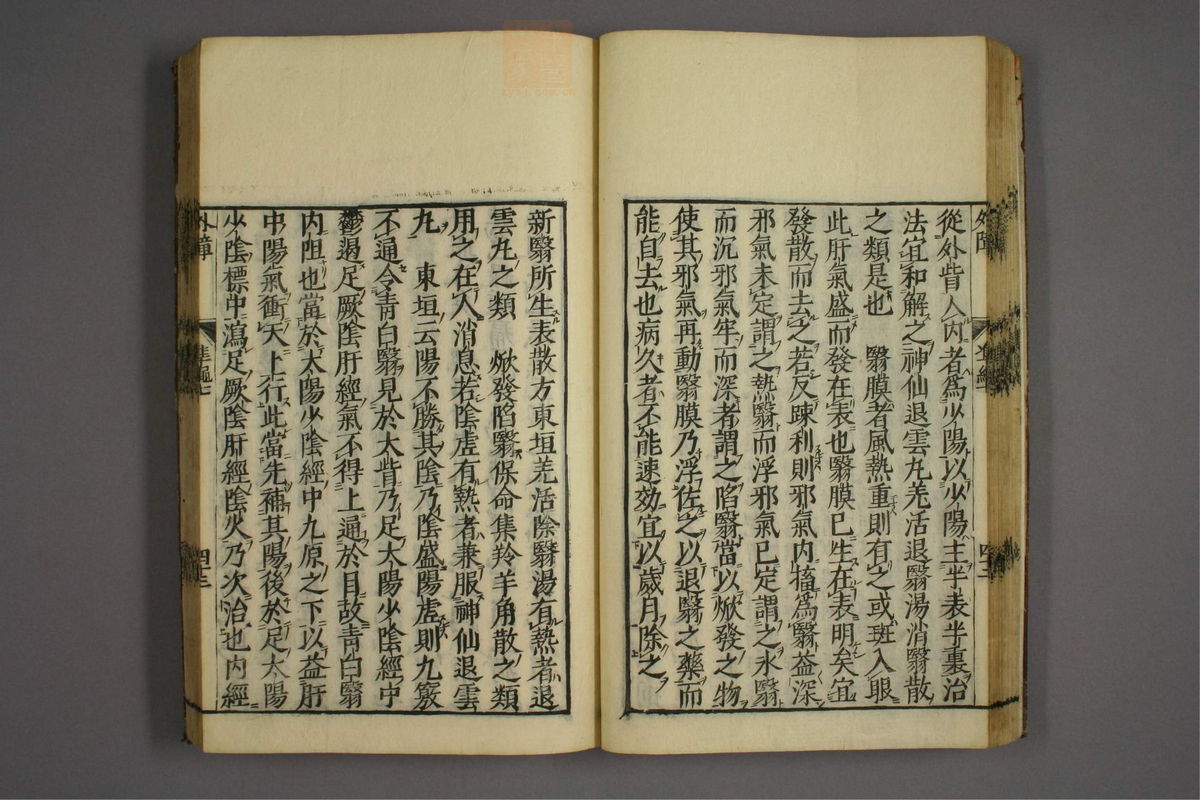 從外眥入內者爲少陽以少陽主半表半裏治
法宜和解之神仙退雲丸羌活退翳湯消翳散
之類是也　翳膜者風熱重則有之或斑入眼
此肝氣盛而發在表也翳膜已生在表明矣宜
發散而去之若反疎利則邪氣內搐爲翳益深
邪氣未定謂之熱翳而浮邪氣已定謂之氷翳
而沉邪氣牢而深者謂之陷翳當以焮發之物
使其邪氣再動翳膜乃浮佐之以退翳之藥而
能自去也病久者不能速効宜以歲月除之
新翳所生表散方東垣羌活除翳湯有熱者退
雲丸之類　焮發陷翳保命集羚羊角散之類
用之在人消息若陰虛有熱者兼服神仙退雲
丸　東垣云陽不勝其陰乃陰盛陽虛則九竅
不通令青白翳見於太眥乃足太陽少陰經中
鬱遏足厥陰肝經氣不得上通於目故青白翳
內阻也當於太陽少陰經中九原之下以益肝
中陽氣衝天上行此當先補其陽後於足太陽
少陰標中瀉足厥陰肝經陰火乃次治也內經
外障
四三